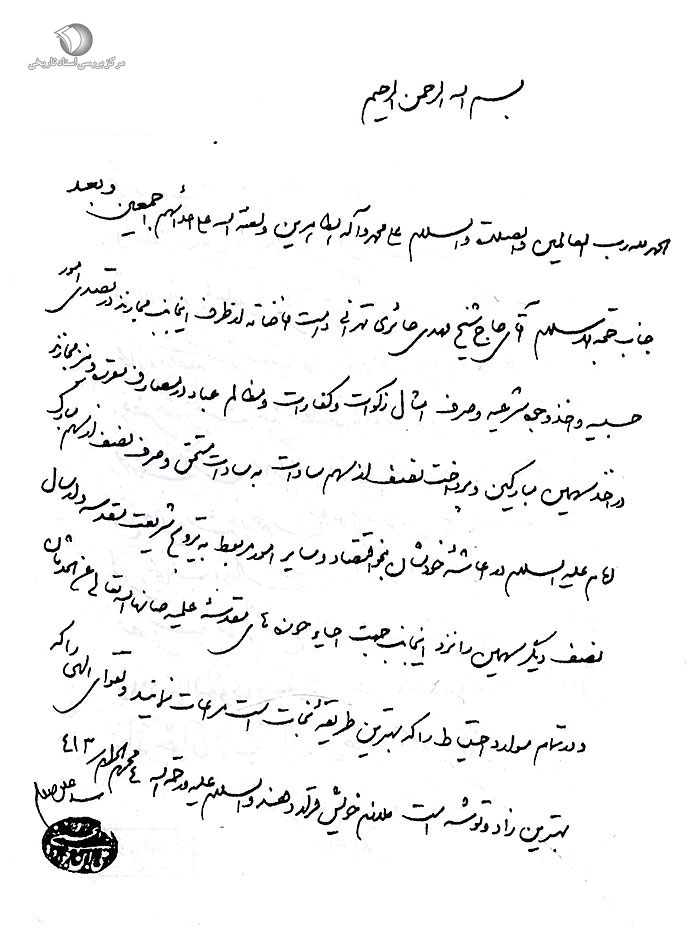 مرکز بررسی اسناد تاریخی
بسم الله الرحمن الرحیم
الحمد لله رب العالمین والصلوة والسلام علی محمد وآله الطاهرین ولعنة الله علی اعدائهم اجمعین وبعد
جناب حجة الاسلام آقای حاج شیخ مهدی حائری تهرانی دامت افاضاته از طرف اینجانب مجازند در تصدی امور
حسبیه و اخذ وجوه شرعیه و صرف امثال زکوات و کفارات و مظالم عباد در مصارف مقرره و نیز مجازند
در اخذ سهمین مبارکین و پرداخت نصف از سهم سادات به سادات مستحق و صرف نصف از سهم مبارک
امام علیه السلام در اعاشهٔ خودشان بنحو اقتصاد و سایر امور مربوط به ترویج شریعت مقدسه و ارسال
نصف دیگر سهمین را نزد اینجانب جهت احیاء حوزه های مقدسهٔ علمیه صانها الله تعالی عن الحدثان
و در تمام موارد احتیاط را که بهترین طریقهٔ نجات است مراعات نمایند و تقوای الهی را که
بهترین زاد و توشه است ملازم خویش قرار دهند والسلام علیه ورحمة الله ٤ محرم الحرام ٤١٣